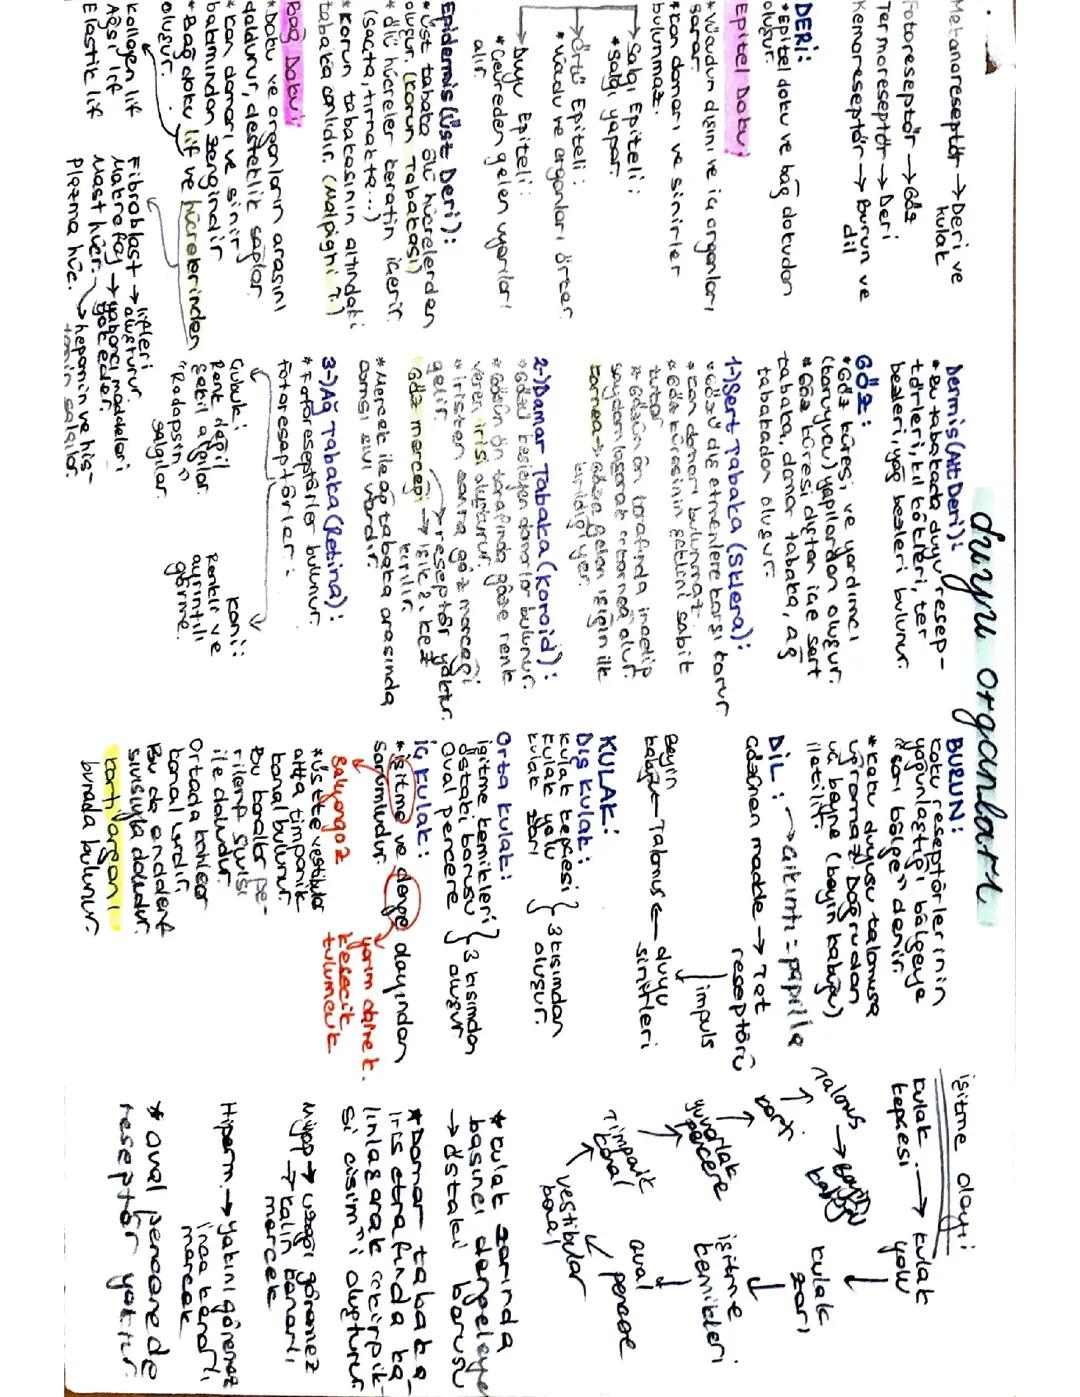 duyu organları
Mekanoreseptör → Deri ve
kulak
Fotoreseptör → Göz
Termoreseptör → Deri
Kemoreseptör → Burun ve
dil
DERİ:
*Epitel doku ve bağ dokudan
oluşur.
Epitel Doku:
*Vücudun dışını ve iç organları
sarar.
*Kan damarı ve sinirler
bulunmaz.
→Salgı Epiteli:
*Salgı yapar.
→Örtü Epiteli:
*Vücudu ve organları örter
→Duyu Epiteli:
*Çevreden gelen uyarıları
alır.
Epidermis (Üst Deri):
*Üst tabaka ölü hücrelerden
oluşur. (Korun Tabakası)
*ölü hücreler keratin içerir.
(saçta, tırnakta...)
*Korun tabakasının altındaki
tabaka canlıdır. (Malpighi T.)
Bağ Doku:
*Doku ve organların arasını
doldurur, desteklik sağlar.
*Kan damarı ve sinir
bakımından zengindir
*Bağ doku lif ve hücrelerinden
oluşur.
Kollagen lif
Ağsı lif
Elastik lif
Fibroblast → lifleri
oluşturur
Makrofaj → yabancı maddeleri
yok eder.
Mast hücr. → heparin ve his-
tamin salgılar.
Plazma hüc.
Dermis (Alt Deri):
*Bu tabakada duyu resep-
törleri, kıl kökleri, ter
bezleri, yağ bezleri bulunur.
GÖZ:
*Göz küresi ve yardımcı
(koruyucu) yapılardan oluşur.
*Göz küresi dıştan içe sert
tabaka, damar tabaka, ağ
tabakadan oluşur.
1-)Sert Tabaka (Sklera):
*Gözü dış etmenlere karşı korur
*Kan damarı bulunmaz.
*Göz küresinin şeklini sabit
tutar
*Gözün ön tarafında incelip
saydamlaşarak kornea olur.
kornea → göze gelen ışığın ilk
kırıldığı yer.
2-)Damar Tabaka (Koroid):
*Gözü besleyen damarlar bulunur.
*Gözün ön tarafında göze renk
veren irisi oluşturur.
*iristen sonra göz merceği
gelir.
→reseptör yoktur.
Göz merceği → ışık 2. kez
kırılır.
*Mercek ile ağ tabaka arasında
camsı sıvı vardır.
3-)Ağ Tabaka (Retina):
*Fotoreseptörler bulunur.
Fotoreseptörler:
Çubuk:
Renk değil
şekil algılar.
"Rodopsin"
salgılar
Koni:
Renkli ve
ayrıntılı
görme.
BURUN:
Koku reseptörlerinin
yoğunlaştığı bölgeye
"sarı bölge" denir.
*Koku duyusu talamusa
uğramaz. Doğrudan
uç beyne (beyin kabuğu)
iletilir.
DİL: →Çıkıntı = papilla
çözünen madde → Tat
reseptörü
↓ impuls
Beyin
kabuğu ← Talamus ← duyu
sinirleri
KULAK:
Dış Kulak:
Kulak kepçesi
Kulak yolu
Kulak zarı
3 kısımdan
oluşur.
Orta Kulak:
işitme kemikleri
östaki borusu
Oval pencere
3 kısımdan
oluşur
iç kulak:
*işitme ve denge dayından
sorumludur.
salyangoz
yarım daire k.
kesecik
tulumcuk
*üstte vestibular
altta timpanik
kanal bulunur.
Bu kanallar pe-
rilenf sıvısı
ile doludur.
Ortada kohlear
kanal vardır.
Bu da endolenf
sıvısıyla doludur.
Korti organı
burada bulunur.
işitme olayı:
kulak → kulak
kepçesi yolu
↓
kulak
zarı
↓
işitme
kemikleri
↓
oval
pencere
vestibular
kanal
Timpanik
kanal
yuvarlak
pencere
korti
Talamus → beyin
kabuğu
*Kulak zarında
basıncı dengeleyen
→ östaki borusu
*Damar tabaka
iris etrafında ka-
lınlaşarak "kirpik-
si cisim"i oluşturur
Miyop → uzağı göremez
→ kalın kenarlı
mercek
Hiperm. → yakını göremez
ince kenarlı
mercek
*Oval pencerede
reseptör yoktur.